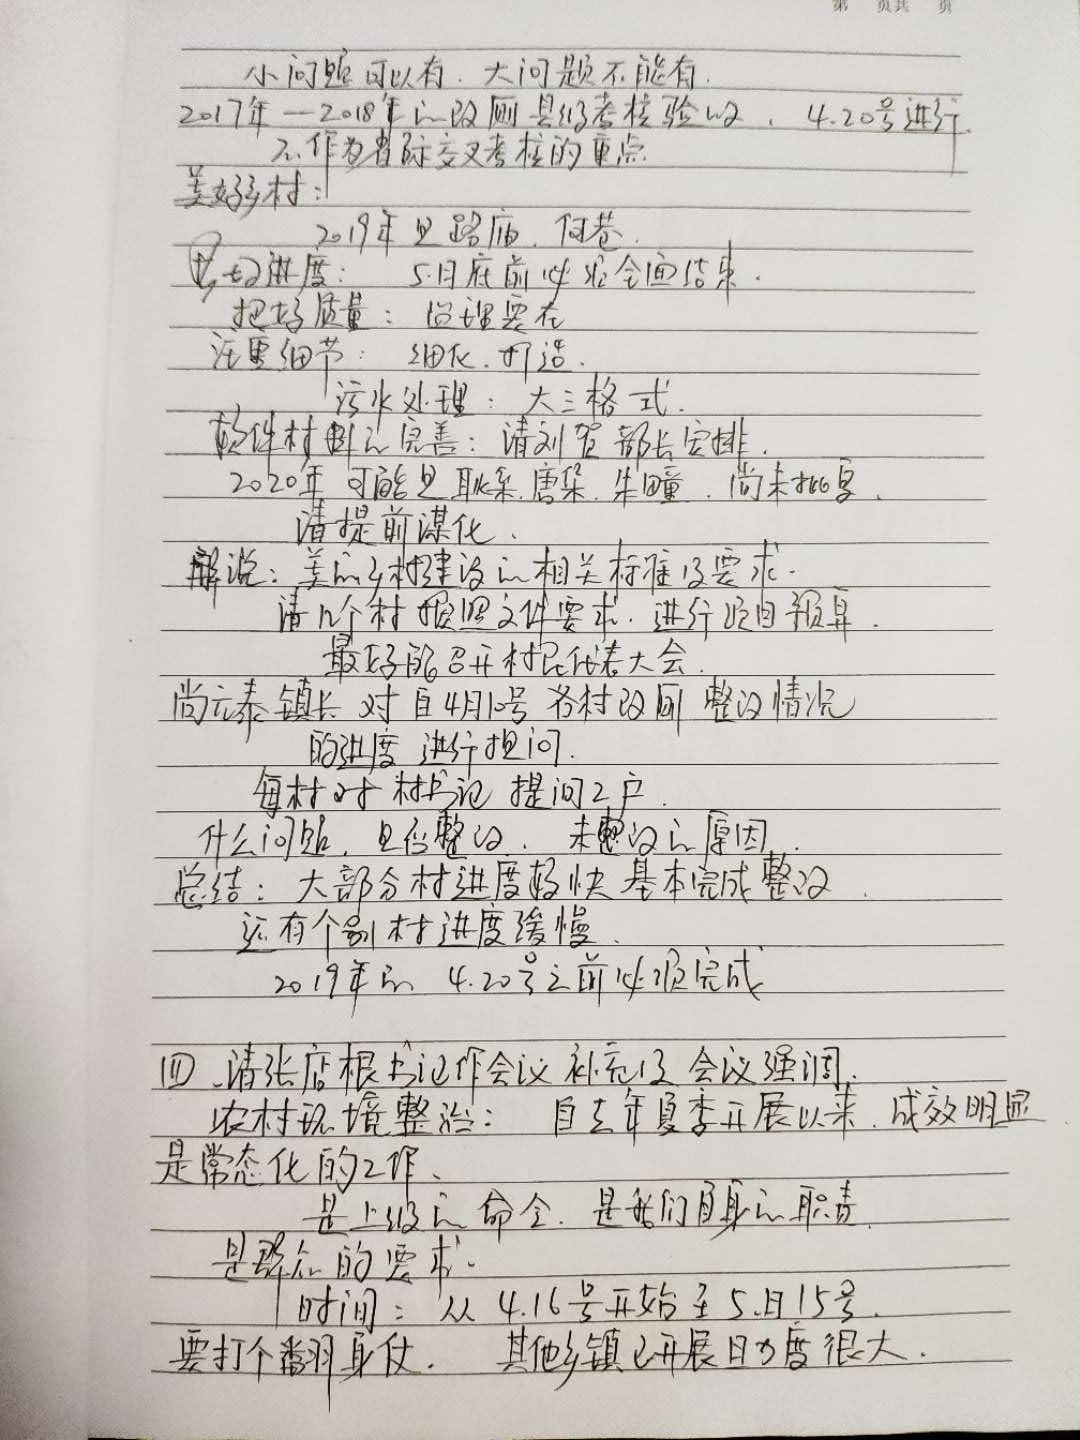 第 页共 页
小问题可以有．大问题不能有．
2017年—2018年的改厕县级考核验收．4.20号进行．
作为省际交叉考核的重点
美好乡村：
2019年是路庙．何巷．
进度：5月底前必须全面结束．
把好质量：监理要在
注重细节：细化．打造．
污水处理：大三格式．
软件材料的完善：请刘贺部长安排．
2020年可能是耿朵．唐朵．朱疃．尚未批复．
请提前谋化．
解说：美的乡村建设的相关标准及要求．
请几个村按照文件要求．进行项目预算．
最好能召开村民代表大会．
尚元泰镇长对自4月10号各村改厕整改情况
的进度进行提问．
每村对村书记提问2户．
什么问题．是否整改．未整改的原因．
总结：大部分村进度较快基本完成整改．
还有个别村进度缓慢．
2019年的4.20号之前必须完成
四．请张店根书记作会议补充及会议强调．
农村环境整治：自去年夏季开展以来．成效明显
是常态化的工作．
是上级的命令．是我们自身的职责．
是群众的要求．
时间：从4.16号开始至5月15号．
要打个翻身仗．其他乡镇已开展日力度很大．